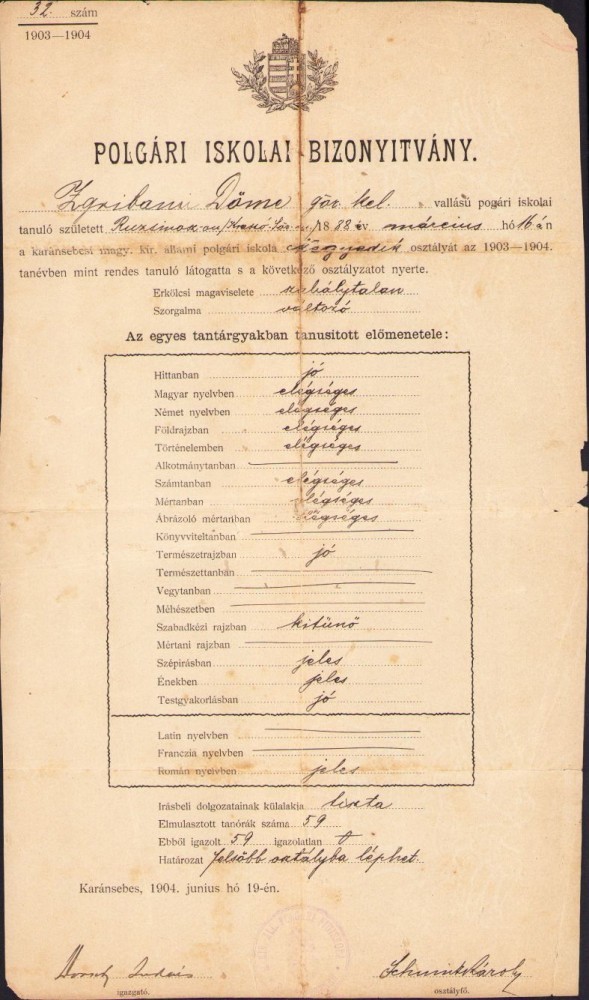 32. szám
1903—1904
POLGÁRI ISKOLAI BIZONYITVÁNY.
Zgribanu Döme gör. kel. vallású pogári iskolai
tanuló született 1888 év március hó 16 án
a karánsebesi magy. kir. állami polgári iskola negyedik osztályát az 1903—1904.
tanévben mint rendes tanuló látogatta s a következő osztályzatot nyerte.
Erkölcsi magaviselete szabálytalan
Szorgalma változó
Az egyes tantárgyakban tanusitott előmenetele:
Hittanban jó
Magyar nyelvben elégséges
Német nyelvben elégséges
Földrajzban elégséges
Történelemben elégséges
Alkotmánytanban
Számtanban elégséges
Mértanban elégséges
Ábrázoló mértanban elégséges
Könyvviteltanban
Természetrajzban jó
Természettanban
Vegytanban
Méhészetben
Szabadkézi rajzban kitünő
Mértani rajzban
Szépirásban jeles
Énekben jeles
Testgyakorlásban jó
Latin nyelvben
Franczia nyelvben
Román nyelvben jeles
Irásbeli dolgozatainak külalakja tiszta
Elmulasztott tanórák száma 59
Ebből igazolt 59 igazolatlan 0
Határozat felsőbb osztályba léphet.
Karánsebes, 1904. junius hó 19-én.
Schmidt Károly
igazgató.
osztályfő.